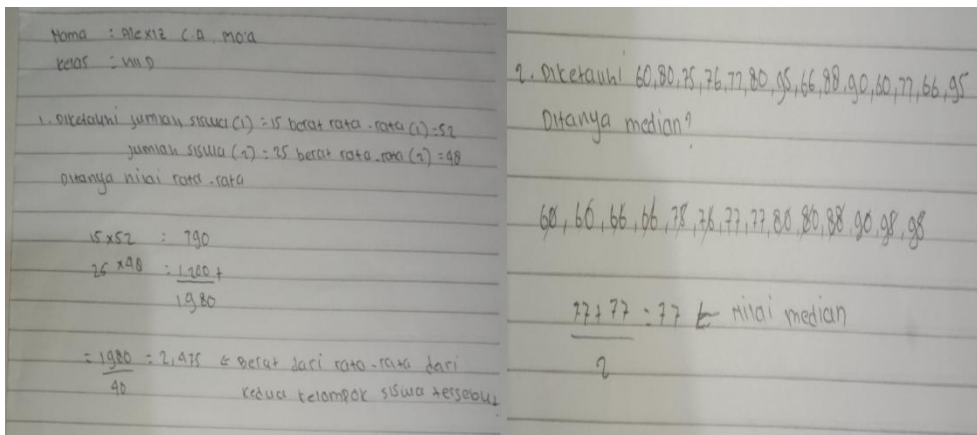 Nama : Alexiz C.A. Moa
Kelas : VIII D
1. Diketauhi jumlah siswa (1) = 15 berat rata-rata (1) = 52
jumlah siswa (2) = 25 berat rata-rata (2) = 48
Ditanya nilai rata-rata
15 x 52 : 790
25 x 48 : 1.200 +
1980
= 1980 = 2,475 ← Berat dari rata-rata dari
40 kedua kelompok siswa tersebut
2. Diketauhi 60,80,75,76,77,80,95,66,88,90,60,77,66,95
Ditanya median?
60, 60, 66, 66, 75, 76, 77, 77, 80, 80, 88, 90, 98, 98
77 + 77 = 77 ← Nilai median
2